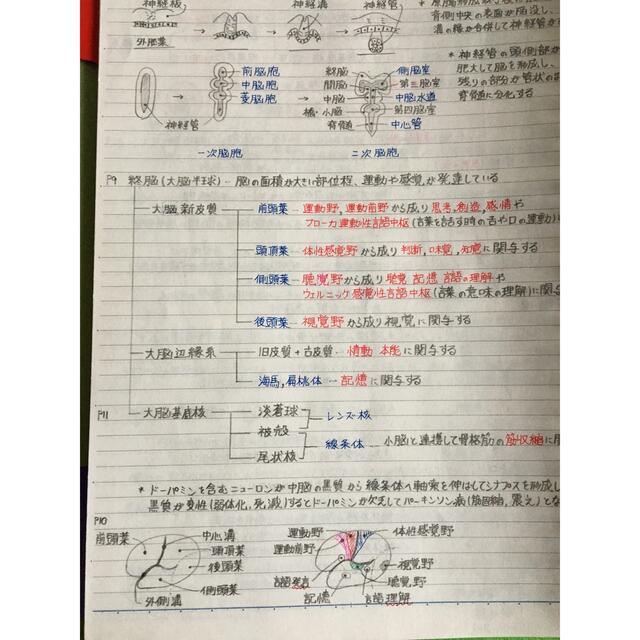 神経板
神経溝
神経管
外胚葉
背側中央の表面が陥没し、
溝の縁が合併して神経管が
*神経管の頭側部が
肥大して脳を形成し、
残りの部分が管状の
脊髄に分化する
前脳胞
中脳胞
菱脳胞
神経管
終脳
間脳
中脳
橋・小脳
脊髄
側脳室
第三脳室
中脳水道
第四脳室
中心管
一次脳胞
二次脳胞
P9 終脳(大脳半球)…脳の面積が大きい部位程、運動や感覚が発達している
大脳新皮質
前頭葉…運動野,運動前野から成り思考,創造,感情や
ブローカ運動性言語中枢(言葉を話す時の舌や口の運動)に
頭頂葉…体性感覚野から成り判断,味覚,知覚に関与する
側頭葉…聴覚野から成り聴覚 記憶 言語の理解や
ウェルニッケ感覚性言語中枢(言葉の意味の理解)に関
後頭葉…視覚野から成り視覚に関与する
大脳辺縁系
旧皮質+古皮質…情動 本能に関与する
海馬,扁桃体…記憶に関与する
P11
大脳基底核
淡蒼球
被殻
尾状核
レンズ核
線条体…小脳と連携して骨格筋の筋収縮に
*ドーパミンを含むニューロンが中脳の黒質から線条体へ軸索を伸ばしてシナプスを形成し
黒質が変性(弱体化,死滅)するとドーパミンが欠乏してパーキンソン病(筋固縮,震え)とな
P10
前頭葉
中心溝
頭頂葉
後頭葉
側頭葉
外側溝
運動野
運動前野
言語発言
記憶
体性感覚野
視覚野
聴覚野
言語理解